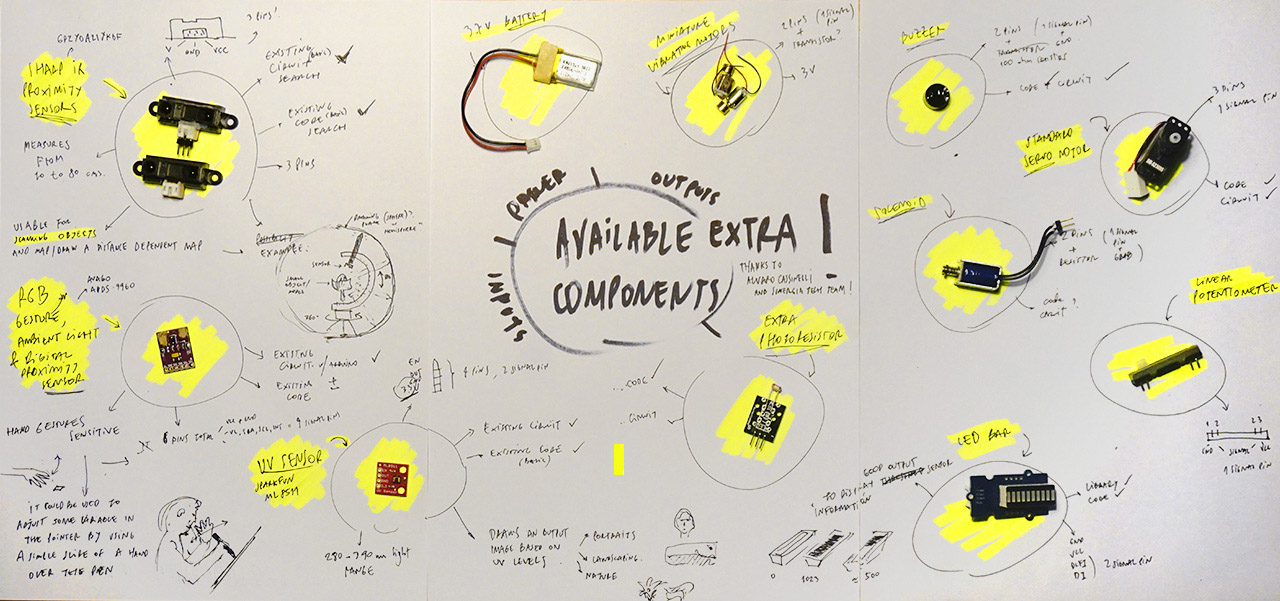 3 PINS!
V GND VCC
SHARP IR
PROXIMITY
SENSORS
EXISTING
CIRCUIT
SEARCH
EXISTING
CODE
SEARCH
3 PINS
MEASURES
FROM
10 to 80 cms.
USABLE FOR
SCANNING OBJECTS
AND MAP/DRAW A DISTANCE DEPENDENT MAP
EXAMPLE:
SENSOR
360°
RGB
GESTURE,
AMBIENT LIGHT
& DIGITAL
PROXIMITY
SENSOR
APDS-9960
EXISTING
CIRCUIT. / ARDUINO
EXISTING
CODE
HAND GESTURES
SENSITIVE
6 PINS TOTAL
IT COULD BE USED TO
ADJUST SOME VARIABLE IN
THE POINTER BY USING
A SIMPLE SLIDE OF A HAND
OVER THE PEN
UV SENSOR
SPARKFUN
ML8511
EN
OUT
GND
3.3V
EXISTING CIRCUIT
EXISTING CODE
(BASIC)
280-390 nm light
RANGE
DRAWS AN OUTPUT
IMAGE BASED ON
UV LEVELS.
PORTRAITS
LANDSCAPING
NATURE
3.7V BATTERY
MINIATURE
VIBRATING MOTORS
2 PINS (1 SIGNAL
PIN
+
TRANSISTOR?
3V
POWER
OUTPUTS
INPUTS
AVAILABLE EXTRA
COMPONENTS!
THANKS TO
ALVARO CASSINELLI
AND SINERGIA TECH TEAM!
EXTRA
PHOTORESISTOR
...CODE
...CIRCUIT
BUZZER
2 PINS (1 SIGNAL PIN
+
GND
CODE + CIRCUIT
STANDARD
SERVO MOTOR
3 PINS
1 SIGNAL PIN
CODE
CIRCUIT
SOLENOID
2 PINS (1 SIGNAL
PIN
+
RESISTOR
CODE
CIRCUIT
LINEAR
POTENTIOMETER
1 2
GND SIGNAL VCC
1 SIGNAL PIN
LED BAR
GOOD OUTPUT
SENSOR
TO DISPLAY
INFORMATION
LIBRARY
CODE
GND
VCC
DI
2 SIGNAL PIN
0 1023 500